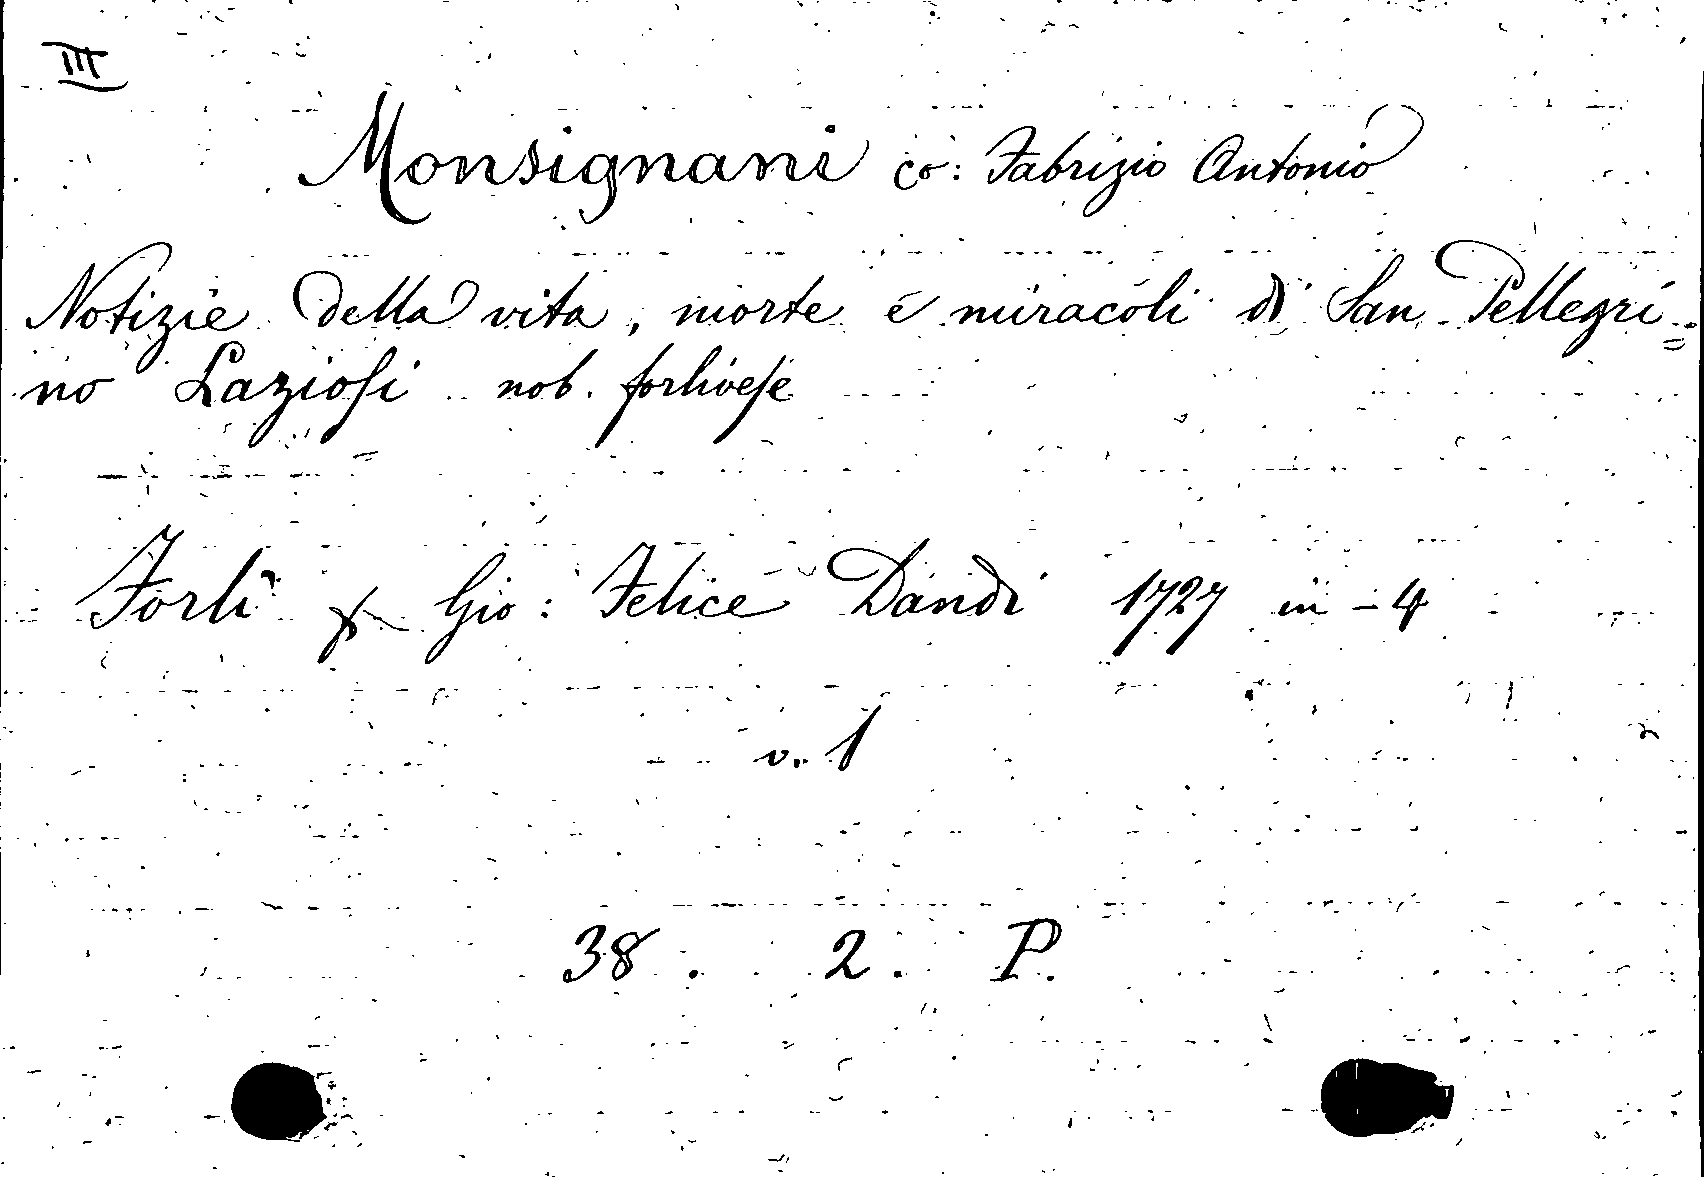 III
Monsignani co: Fabrizio Antonio
Notizie della vita, morte e miracoli di San Pellegri=
no Laziosi nob. forlivese
Forlì Gio: Felice Dandi 1727 in-4
v. 1
38. 2. P.